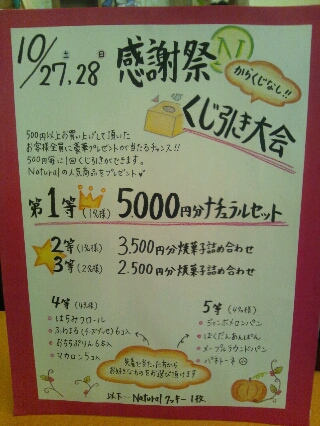 10/27.28
土 日
感謝祭
からくじなし!!
くじ引き大会
500円以上お買い上げして頂いた
お客様全員に豪華プレゼントが当たるチャンス!!
500円毎に1回くじ引きができます。
Naturalの人気商品をプレゼント
第1等(1名様) 5.000円分ナチュラルセット
2等(1名様) 3.500円分焼菓子詰め合わせ
3等(2名様) 2.500円分焼菓子詰め合わせ
4等(4名様)
はちみつロール
ふわまる(チーズソーセ)6コ入
おうちぷりん6本入
マカロン5コ入
5等(4名様)
ジャンボメロンパン
はくだんあんぱん
メープルラウンドパン
パネトーネ
先着に当たった方から
お好きなものをお選び頂けます
以下…Naturalクッキー1枚